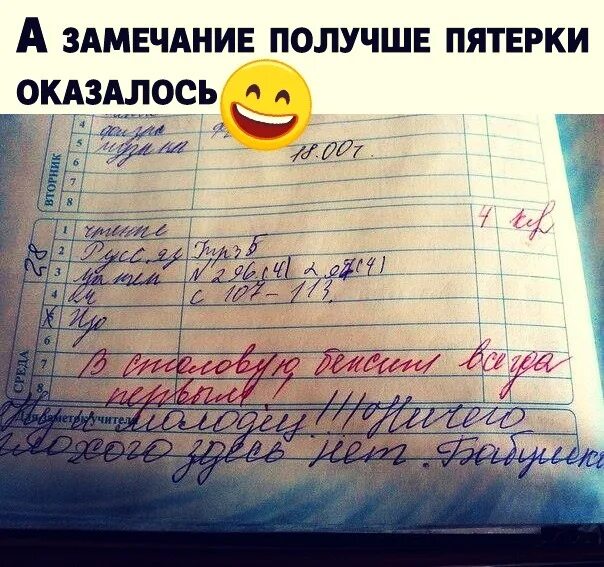 А ЗАМЕЧАНИЕ ПОЛУЧШЕ ПЯТЕРКИ
ОКАЗАЛОСЬ
4
5 музыка 18.00
ВТОРНИК
6
7
8
28
1 чтение 4
2 Русс. яз Упр 5
3 N 296(4) 297(4)
4 с 107-113
5 Изо
6
СРЕДА
7 В столовую бежит всегда
8 первым!
заметок учителя
молодец!!! Ничего
плохого здесь нет. Бабушка